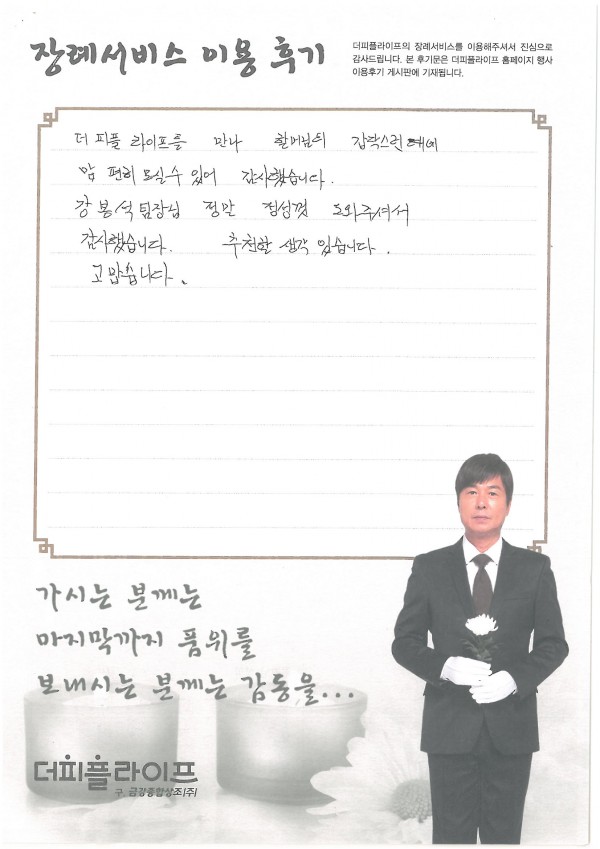 장례서비스 이용 후기
더피플라이프의 장례서비스를 이용해주셔서 진심으로
감사드립니다. 본 후기문은 더피플라이프 홈페이지 행사
이용후기 게시판에 기재됩니다.
더 피플 라이프를 만나 할머님의 갑작스런
맘 편히 모실수 있어 감사했습니다.
강봉석팀장님 정말 정성껏 도와주셔서
감사했습니다. 추천할 생각 있습니다.
고맙습니다.
가시는 분께는
마지막까지 품위를
보내시는 분께는 감동을...
더피플라이프
구. 금강종합상조(주)